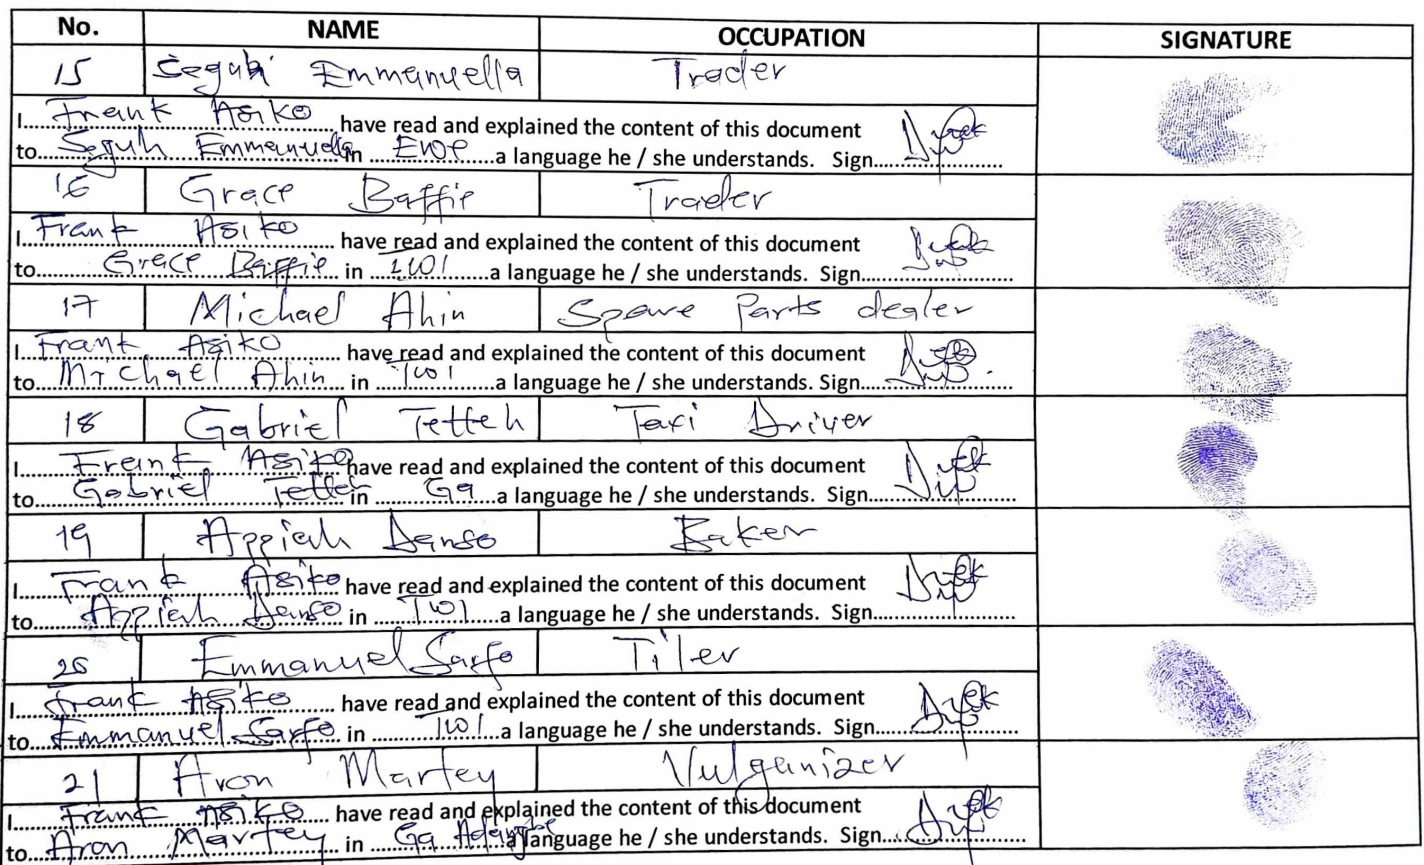 No. NAME OCCUPATION SIGNATURE
15 Seguh Emmanuella Trader
I Frank Asiko have read and explained the content of this document
to Seguh Emmanuella in Ewe a language he / she understands. Sign
16 Grace Baffie Trader
I Frank Asiko have read and explained the content of this document
to Grace Baffie in TWI a language he / she understands. Sign
17 Michael Ahin Spare Parts dealer
I Frank Asiko have read and explained the content of this document
to Michael Ahin in TWI a language he / she understands. Sign
18 Gabriel Tetteh Taxi Driver
I Frank Asiko have read and explained the content of this document
to Gabriel Tetteh in Ga a language he / she understands. Sign
19 Appiah Danso Baker
I Frank Asiko have read and explained the content of this document
to Appiah Danso in TWI a language he / she understands. Sign
20 Emmanuel Sarfo Tiler
I Frank Asiko have read and explained the content of this document
to Emmanuel Sarfo in TWI a language he / she understands. Sign
21 Aron Martey Vulganizer
I Frank Asiko have read and explained the content of this document
to Aron Martey in Ga Adangbe a language he / she understands. Sign